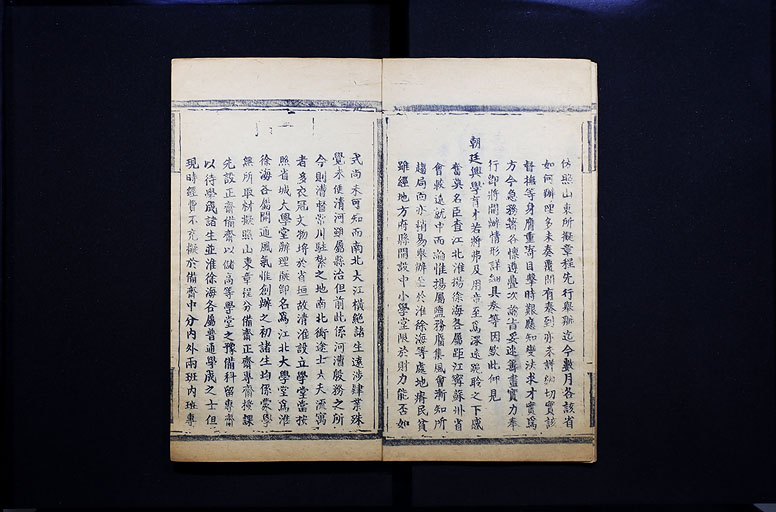 仿照山東所擬章程先行舉辦迄今數月各該省
如何辦理多未奏覆間有奏到亦未詳細切實該
督撫等身膺重寄目擊時艱應知變法求才實爲
方今急務著各懍遵疊次諭旨妥速籌畫實力奉
行即將開辦情形詳細具奏等因欽此仰見
朝廷興學育才若將弗及用意至爲深遠跪聆之下感
奮莫名臣查江北淮揚徐海各屬距江寧蘇州省
會較遠就中而論惟揚屬鹽務廣集風會漸知所
趨局而亦稍易舉辦至於淮徐海等處地瘠民貧
雖經地方府縣開設中小學堂限於財力能否如
式尚未可知而南北大江橫絶諸生遠涉肄業殊
覺未便清河雖屬縣治但前此係河漕殷務之所
今則漕督常川駐紮之地南北衝途士大夫流寓
者多衣冠文物埒於省垣故清淮設立學堂當按
照省城大學堂辦理擬即名爲江北大學堂爲淮
徐海各屬開通風氣惟創辦之初諸生均係蒙學
無所取材擬照山東章程分備齋正齋專齋授課
先設正齋備齋以儲高等學堂之豫備科留專齋
以待學成諸生並淮徐海各屬普通學成之士但
現時經費不充擬於備齋中分內外兩班內班專